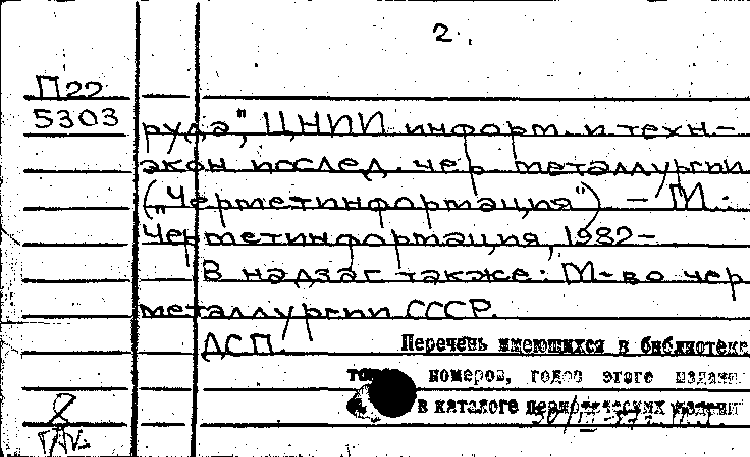 2.
П22
5303
руда", ЦНИИ информ. и техн-
экон исслед. чер металлургии
("Черметинформация") - М.:
Черметинформация, 1982-
В надзаг также: М-во чер
металлургии СССР.
ДСП.
Перечень имеющихся в библиотеке
номеров, годов этого издани
в каталоге периодических издани
2